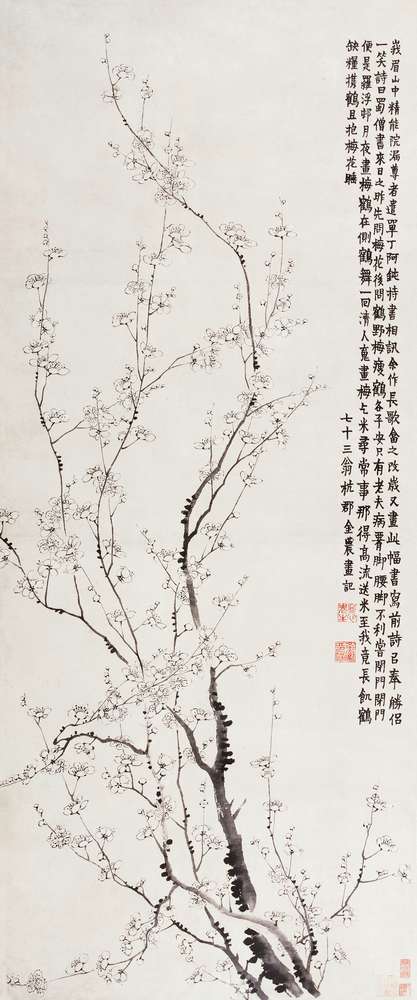 峩眉山中精能院漏尊者遣單丁阿鈍持書相訊余作長歌畣之改歲又畫此幅書寫前詩㠯奉勝侶
一笑詩曰蜀僧書來日之昨先問梅花後問鶴野梅瘦鶴各平安只有老夫病腰脚腰脚不利嘗閉門閉門
便是羅浮邨月夜畫梅鶴在側鶴舞一回清人䰟畫梅乞米尋常事那得高流送米至我竟長飢鶴
缺糧携鶴且抱梅花睡
七十三翁杭郡金農畫記